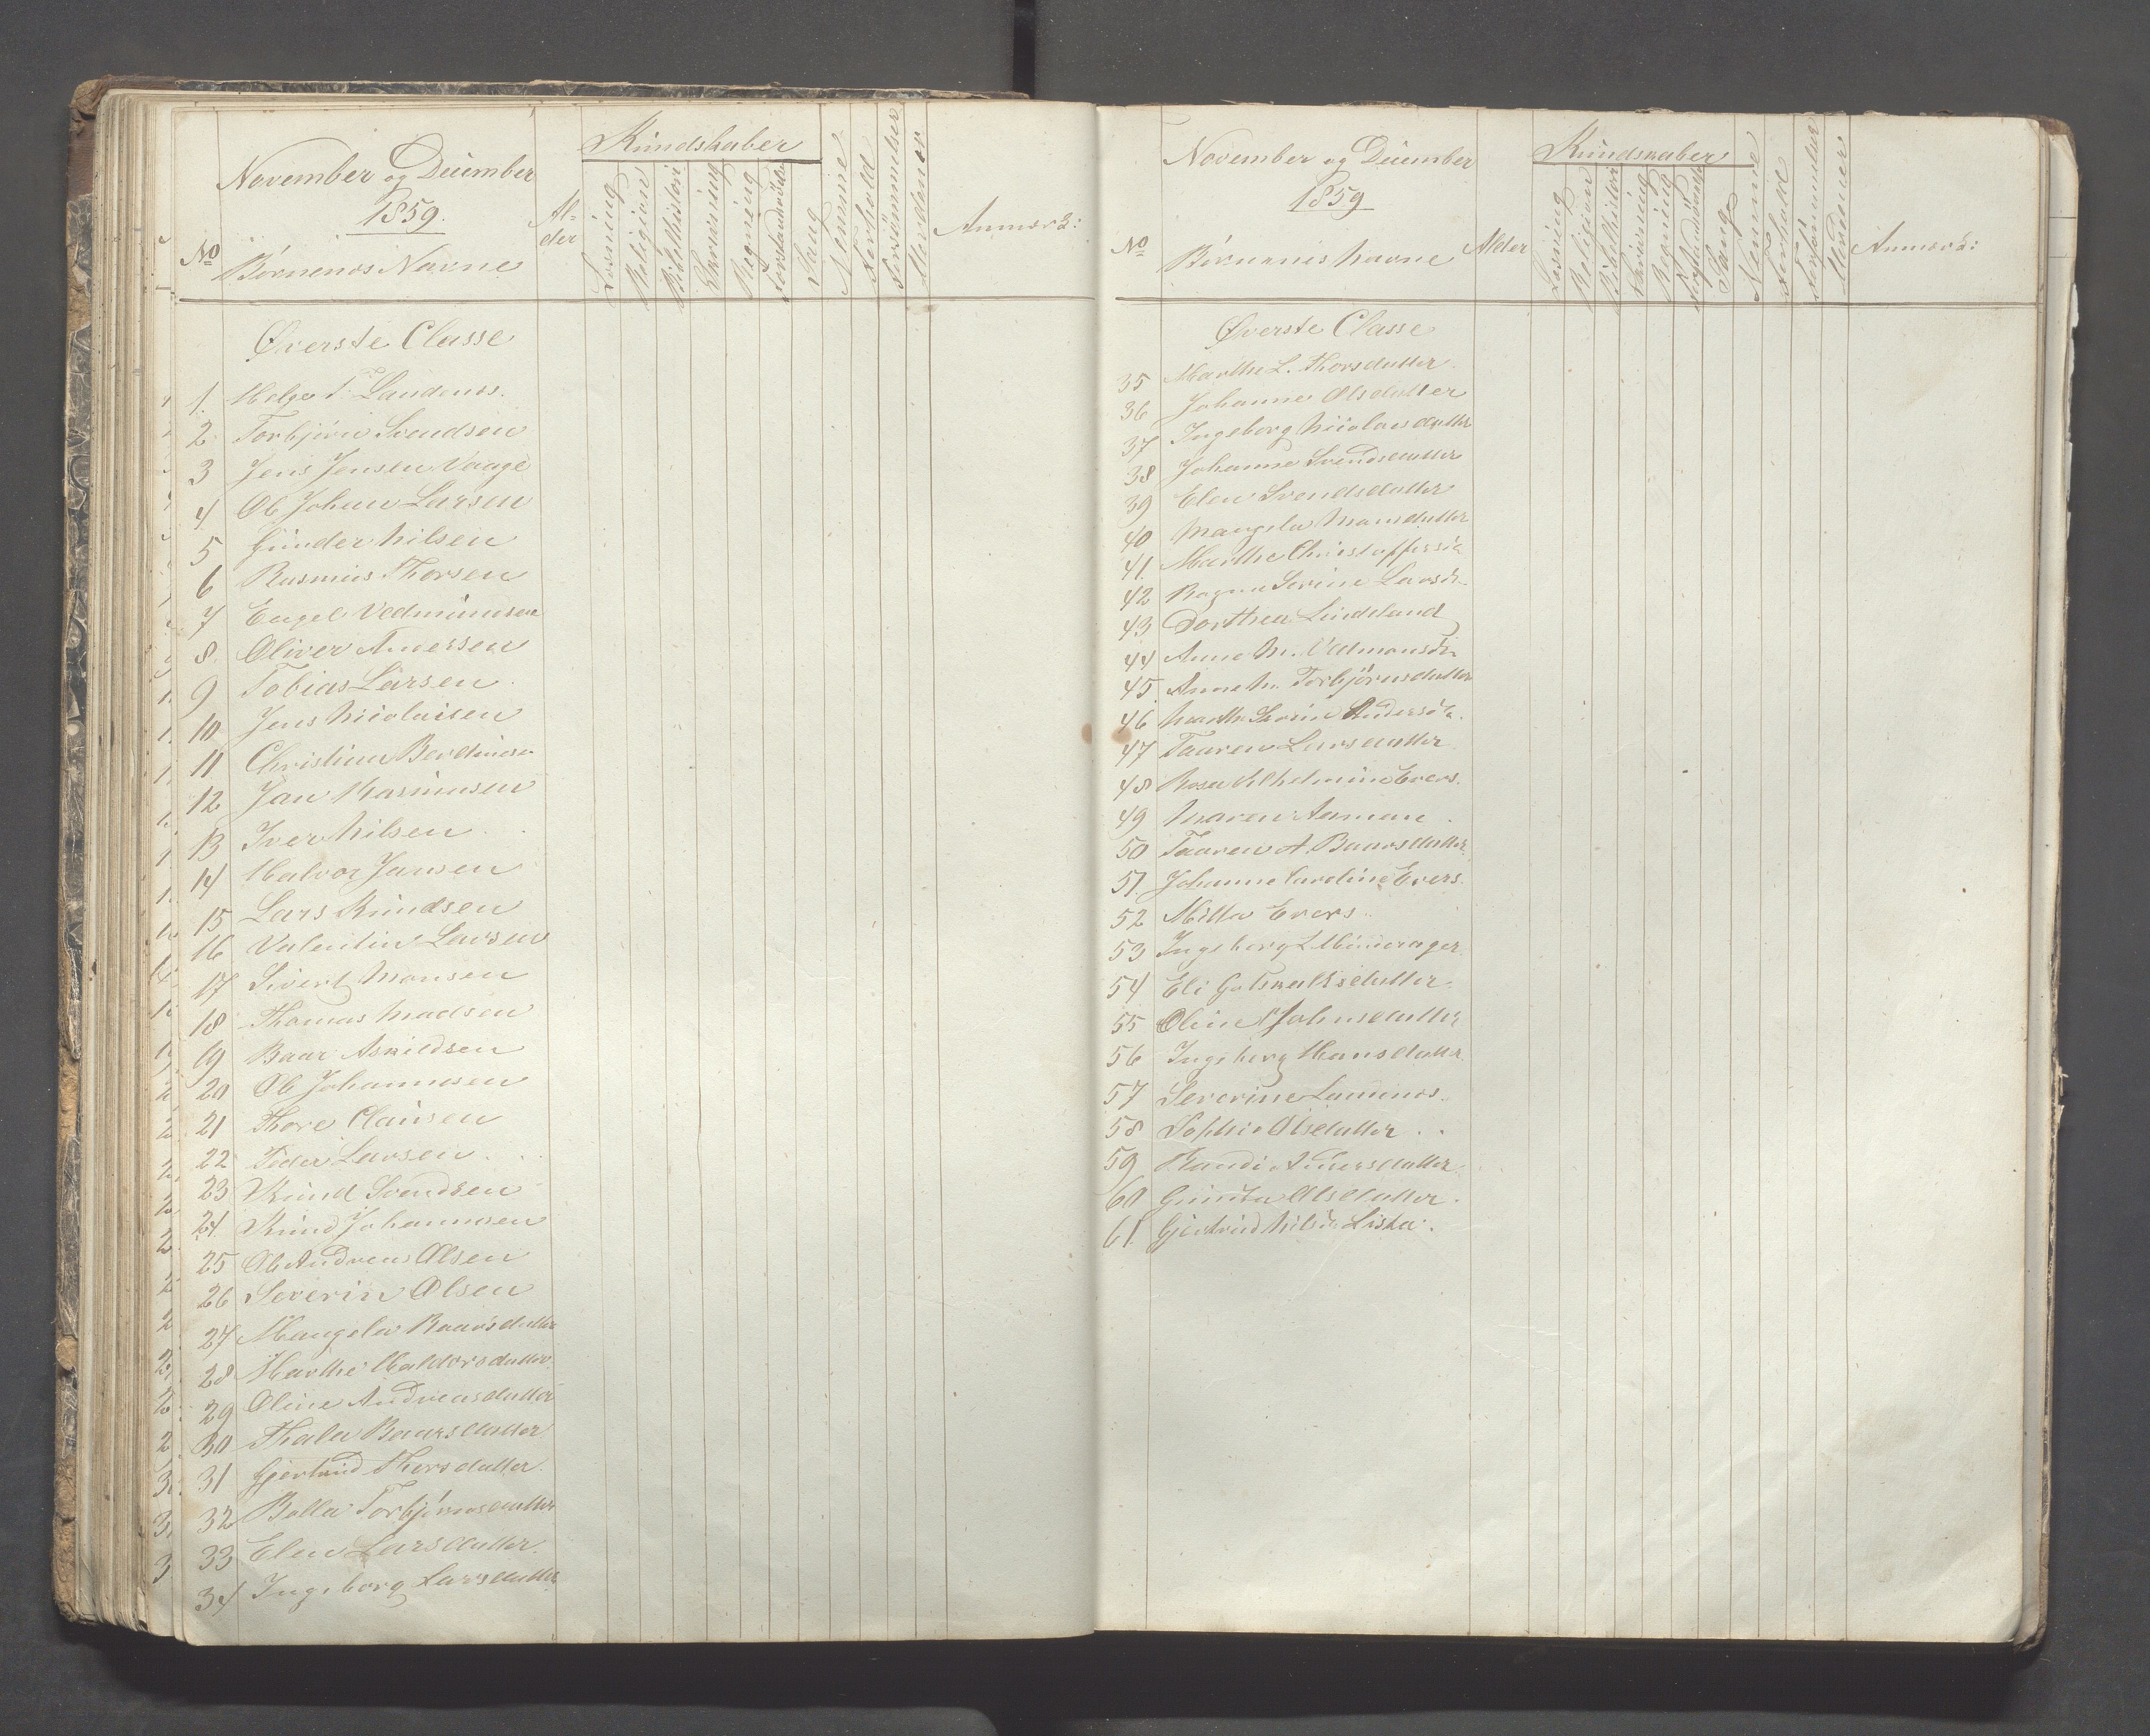 November og December
1859.
No
Børnenes Navne
Al-
der
Kundskaber
Læsning
Religion
Bibelhistori
Skrivning
Regning
Forstandsøvelser
Sang
Nemme
Forhold
Forsømmelser
Mødedage
Anmærk:
Øverste Classe
1. Helge T. Landenes.
2 Torbjörn Svendsen
3 Jens Jensen Vaage
4 Ole Johan Larsen
5 Gunder Nilsen
6 Rasmus Thorsen
7 Engel Vedmundsen
8. Oliver Andersen
9 Tobias Larsen
10 Jens Nicolaisen
11 Christian Berdinesen
12 Jan Rasmusen
13 Iver Nilsen
14 Halvor Jansen
15 Lars Knudsen
16 Valentin Larsen
17 Sivert Monsen
18 Thomas Madsen
19 Baar Askildsen
20 Ole Johannesen
21 Thore Clausen
22 Peder Larsen
23 Knud Svendsen
24 Knud Johannesen
25 Ole Andreas Olsen
26 Severin Olsen
27 Mangela Baarsdatter
28 Marthe Haldorsdatter
29 Oline Andreasdatter
30 Thala Baarsdatter
31 Gjertrud Thorsdatter
32 Bolla Torbjörnsdatter
33 Elen Larsdatter
34 Ingeborg Larsdatter
November og December
1859
No
Børnenes Navne
Alder
Kundskaber
Læsning
Religion
Bibelhistori
Skrivning
Regning
Forstandsøvelser
Sang
Nemme
Forhold
Forsømmelser
Mødedage
Anmærk:
Øverste Classe
35 Marthe L. Thorsdatter
36 Johanne Olsdatter
37 Ingeborg Nicolaisdatter
38 Johanne Svendsdatter
39 Elen Svendsdatter
40 Mangela Monsdatter
41. Marthe Christoffersdr
42 Ragna Serine Larsdr
43 Dorthea Lindeland
44 Anne M. Vedmonsdr
45 Anne M. Torbjörnsdatter
46 Marthe Serine Andersdr.
47 Taaren Larsdatter
48 Rosa Vilhelmine Evers.
49 Maren Aaman
50 Taaren A. Baarsdatter
51. Johanne Caroline Evers.
52 Milla Evers
53 Ingeborg L.
54 Eli Gotskalksdatter
55 Oline Johnsdatter
56 Ingeborg Hansdatter
57 Severine
58 Sophie Olsdatter
59 Randi Andersdatter
60 Gunila Olsdatter.
61. Gjertrud Nilsdr Liska.